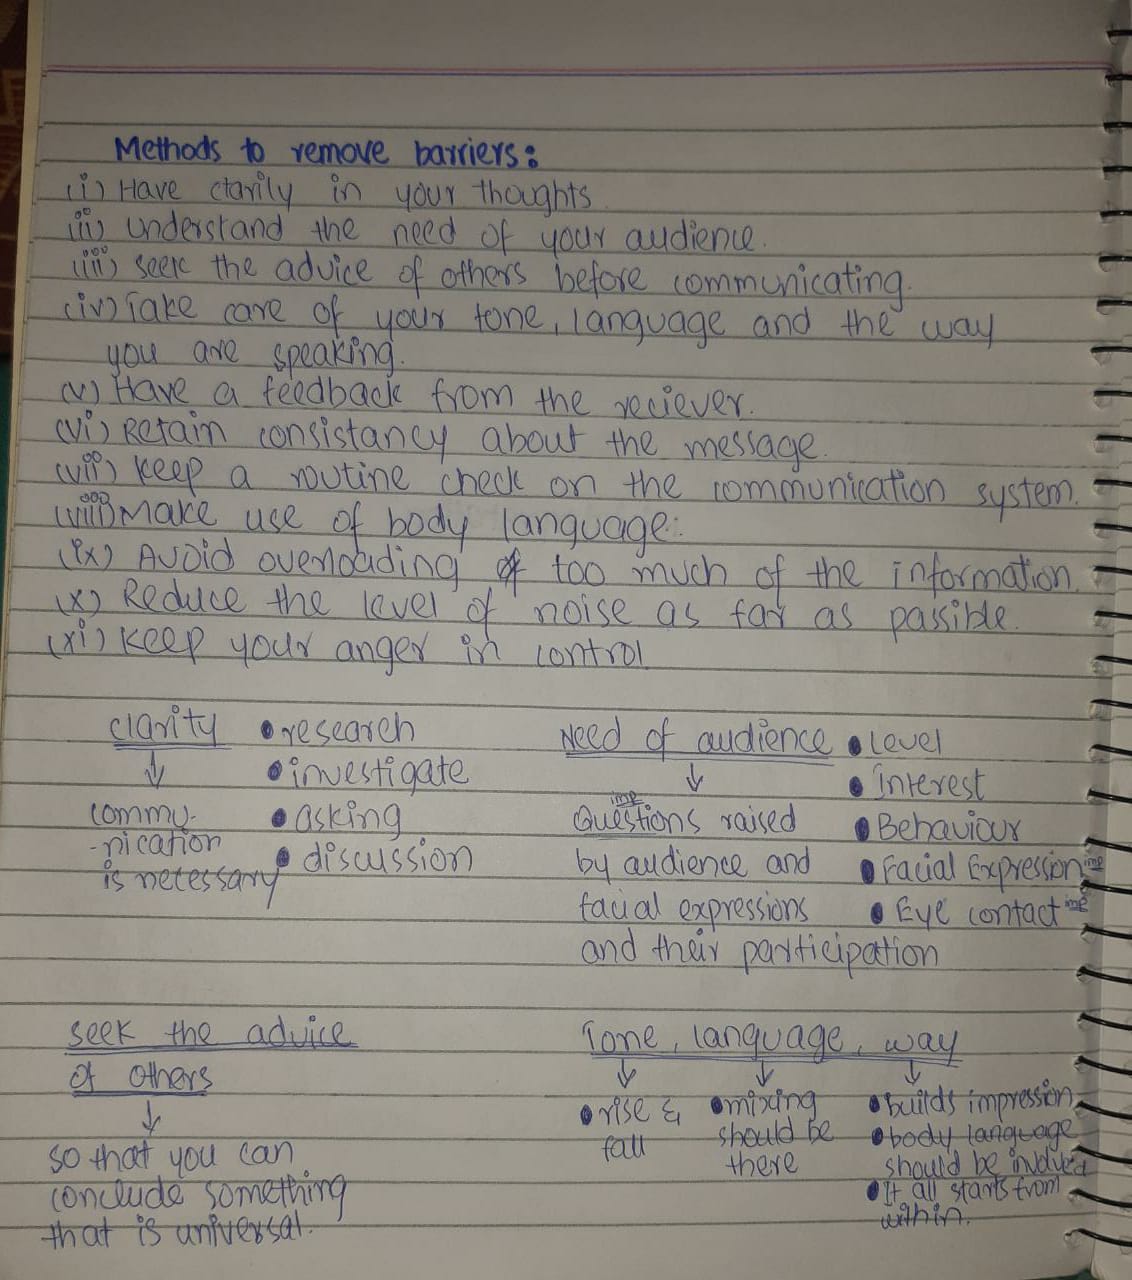 Methods to remove barriers:
(i) Have clarily in your thoughts
(ii) understand the need of your audience.
(iii) seek the advice of others before communicating.
(iv) Take care of your tone, language and the way
you are speaking.
(v) Have a feedback from the reciever.
(vi) Retain consistancy about the message.
(vii) keep a routine check on the communication system.
(viii) Make use of body language.
(ix) Avoid overloading of too much of the information.
(x) Reduce the level of noise as far as passible.
(xi) keep your anger in control
clarity • research
• investigate
commu-
-nication
is necessary
• asking
• discussion
Need of audience • Level
• Interest
imp
Questions raised • Behaviour
by audience and • Facial Expression imp
facial expressions • Eye contact imp
and their participation
seek the advice
of others
so that you can
conclude something
that is universal.
Tone, language, way
• rise &
fall
• mixing
should be
there
• builds impression
• body language
should be involved
• It all starts from
within.